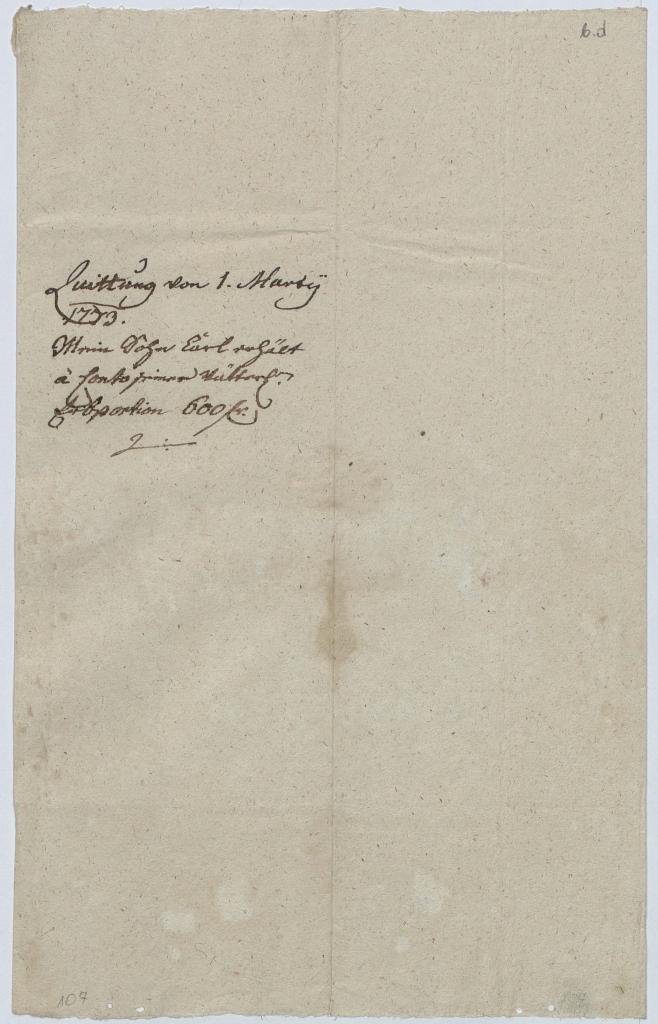 6.d
Quittung von 1. Martÿ
1773.
Mein Sohn Carl erhält
à Conto seiner Vätterl.
Erbportion 600 fr.
107